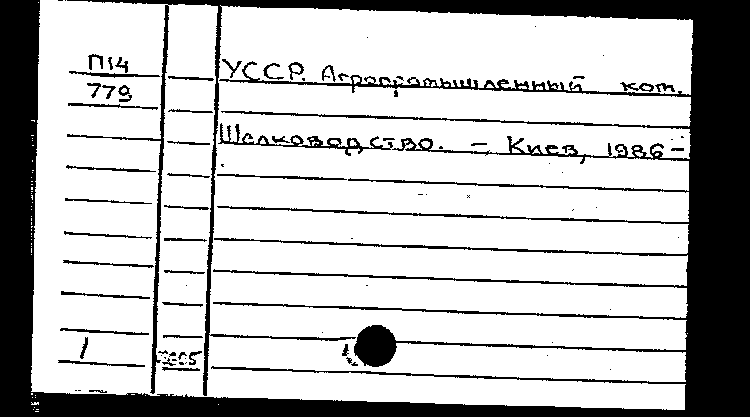 П14
779
УССР. Агропромышленный ком.
Шелководство. – Киев, 1986 –
1